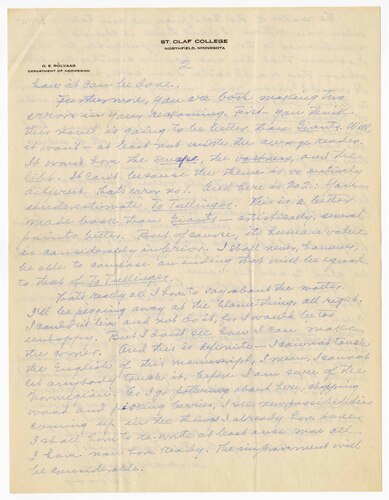 ST. OLAF COLLEGE
NORTHFIELD, MINNESOTA
O. E. ROLVAAG
DEPARTMENT OF NORWEGIAN
2
how it can be done.
Furthermore, you are both making two
errors in your reasoning. First - you think
this novel is going to be better than Giants. Well,
it won't - at least not with the average reader.
It won't have the sweep, the vastness, and the
lift. It can't because the theme is so entirely
different. That's error no 1. And here is No 2: You
underestimate To Tullinger. This is a better
made book than Giants - artistically, several
points better. But of course, its human value
is considerably inferior. I shall never, however,
be able to an ending that will be equal
to that of To Tullinger.
That's really all I have to say about the matter.
I'll be pegging away at the blame thing, all right.
I couldn't live and not do it, for I would be too
unhappy. But I can't see how I can make
the corner. And this is definite - I cannot touch
the English of this manuscript, I mean, I cannot
let anybody touch it, before I am sure of the
Norwegian. As I go pottering about here, chopping
wood and picking berries, I see new possibilities
coming up in the things I already have done.
I shall have to re-write at least once more all
I have now here ready. The improvement will
be considerable.